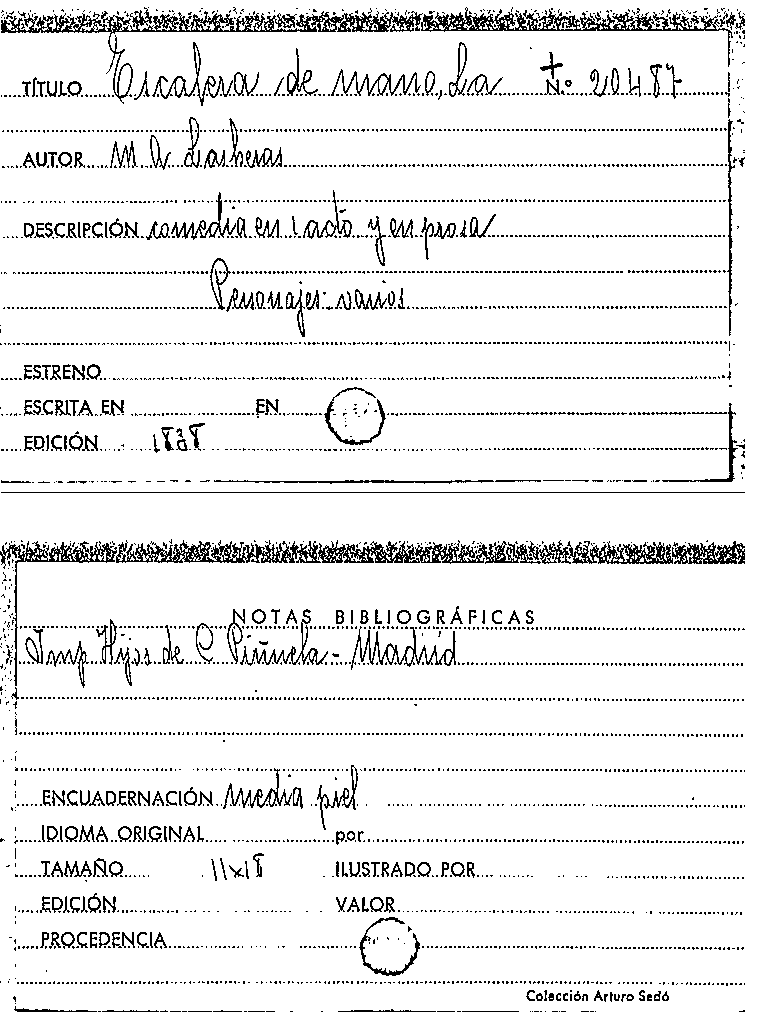 TÍTULO Escalera de mano, La + N.º 20487
AUTOR M A Lasheras
DESCRIPCIÓN comedia en 1 acto y en prosa
Personajes: varios
ESTRENO
ESCRITA EN EN
EDICIÓN 1838
NOTAS BIBLIOGRÁFICAS
Imp Hijos de C Piñuela - Madrid
ENCUADERNACIÓN media piel
IDIOMA ORIGINAL por
TAMAÑO 11x18 ILUSTRADO POR
EDICIÓN VALOR
PROCEDENCIA
Colección Arturo Sedó